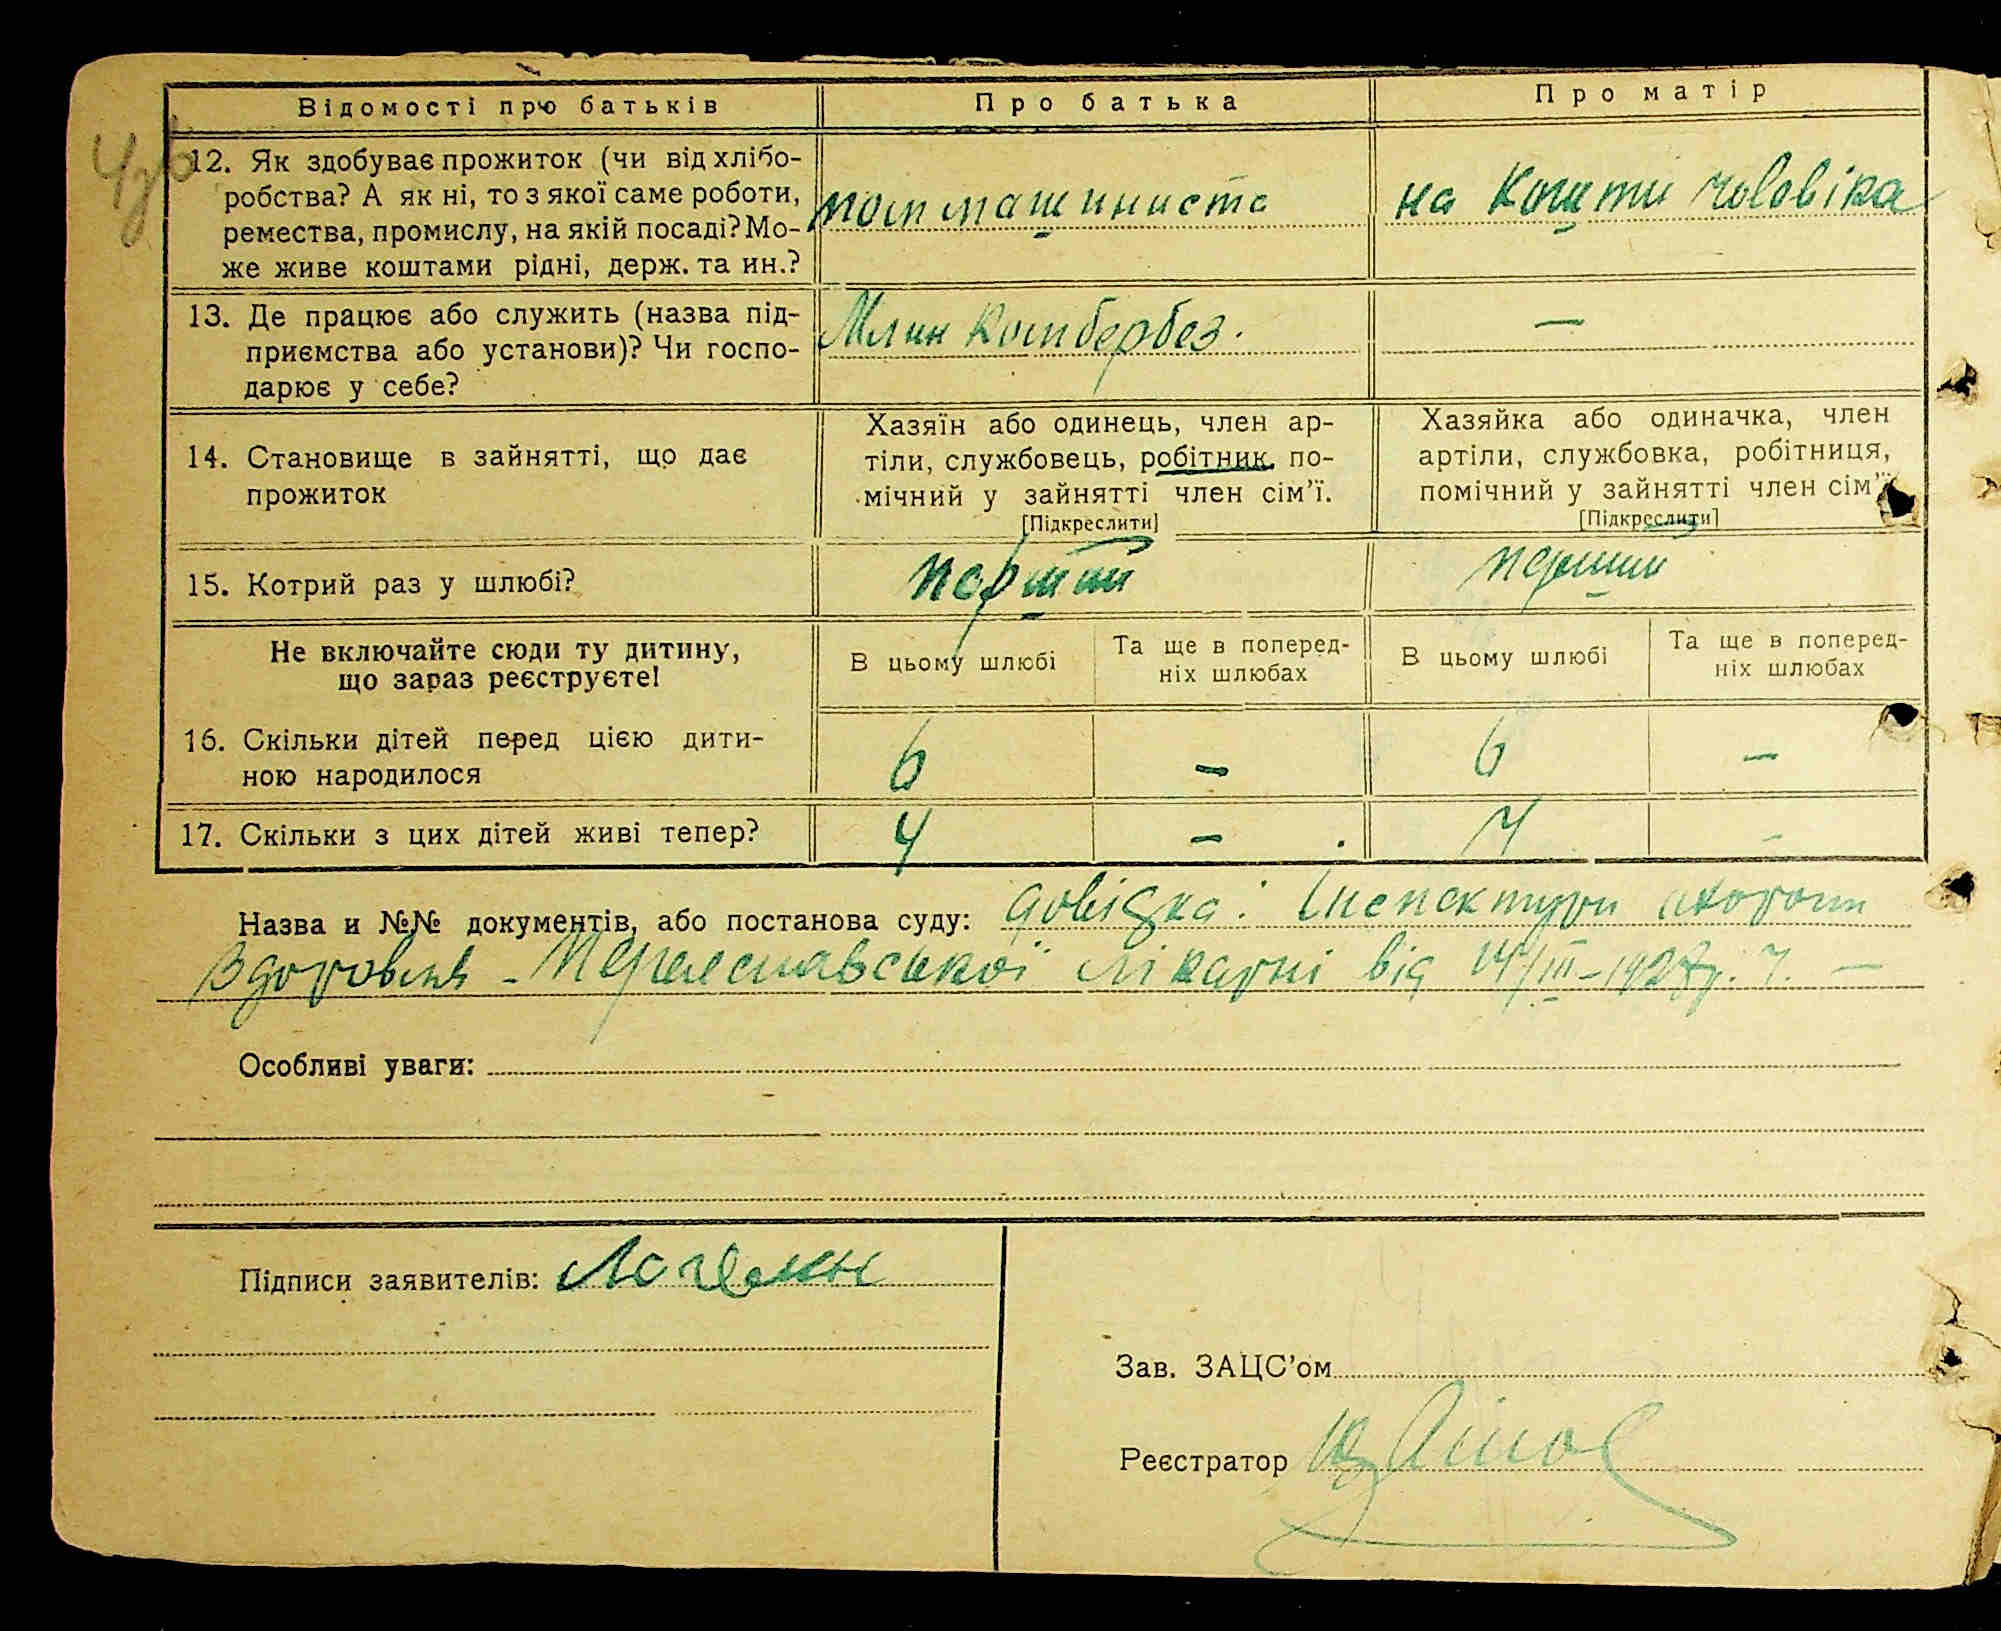 Відомості про батьків
Про батька
Про матір
12. Як здобуває прожиток (чи від хлібо-
робства? А як ні, то з якої саме роботи,
ремества, промислу, на якій посаді? Мо-
же живе коштами рідні, держ. та ин.?
пом машиниста
на кошти чоловіка
13. Де працює або служить (назва під-
приємства або установи)? Чи госпо-
дарює у себе?
Млин
—
14. Становище в зайнятті, що дає
прожиток
Хазяїн або одинець, член ар-
тіли, службовець, робітник, по-
мічний у зайнятті член сім'ї.
[Підкреслити]
Хазяйка або одиначка, член
артіли, службовка, робітниця,
помічний у зайнятті член сім'ї
[Підкреслити]
15. Котрий раз у шлюбі?
перший
перший
Не включайте сюди ту дитину,
що зараз реєструєте!
В цьому шлюбі
Та ще в поперед-
ніх шлюбах
В цьому шлюбі
Та ще в поперед-
ніх шлюбах
16. Скільки дітей перед цією дити-
ною народилося
6
–
6
–
17. Скільки з цих дітей живі тепер?
4
–
4
–
Назва и №№ документів, або постанова суду: довідка: Інспектури охорони
Здоровля - Переяславської лікарні від
Особливі уваги:
Підписи заявителів:
Зав. ЗАЦС'ом
Реєстратор